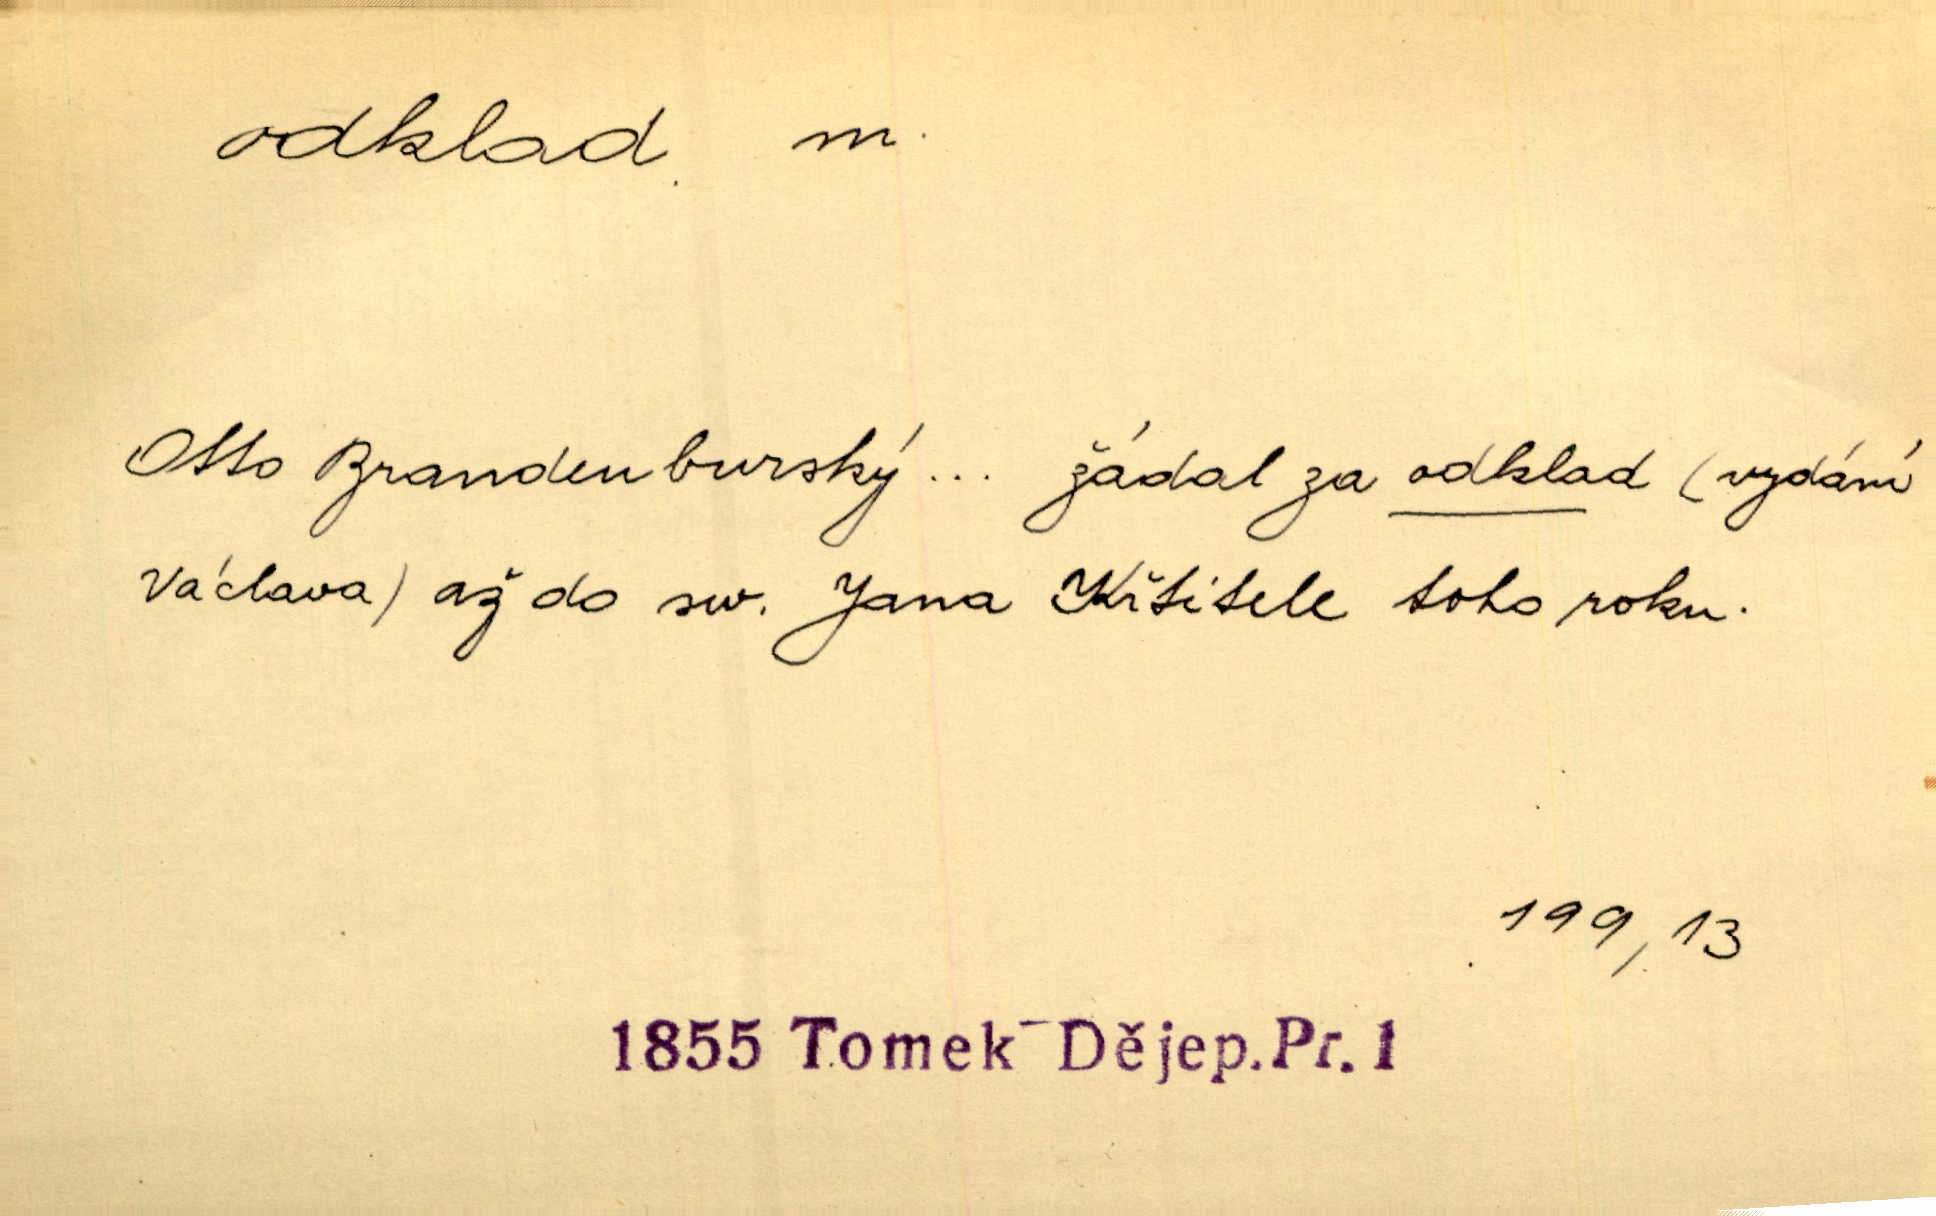 odklad m.
Otto Brandenburský ... žádal za odklad (vydání
Václava) až do sv. Jana Křtitele toho roku.
199, 13
1855 Tomek-Dějep.Pr. 1